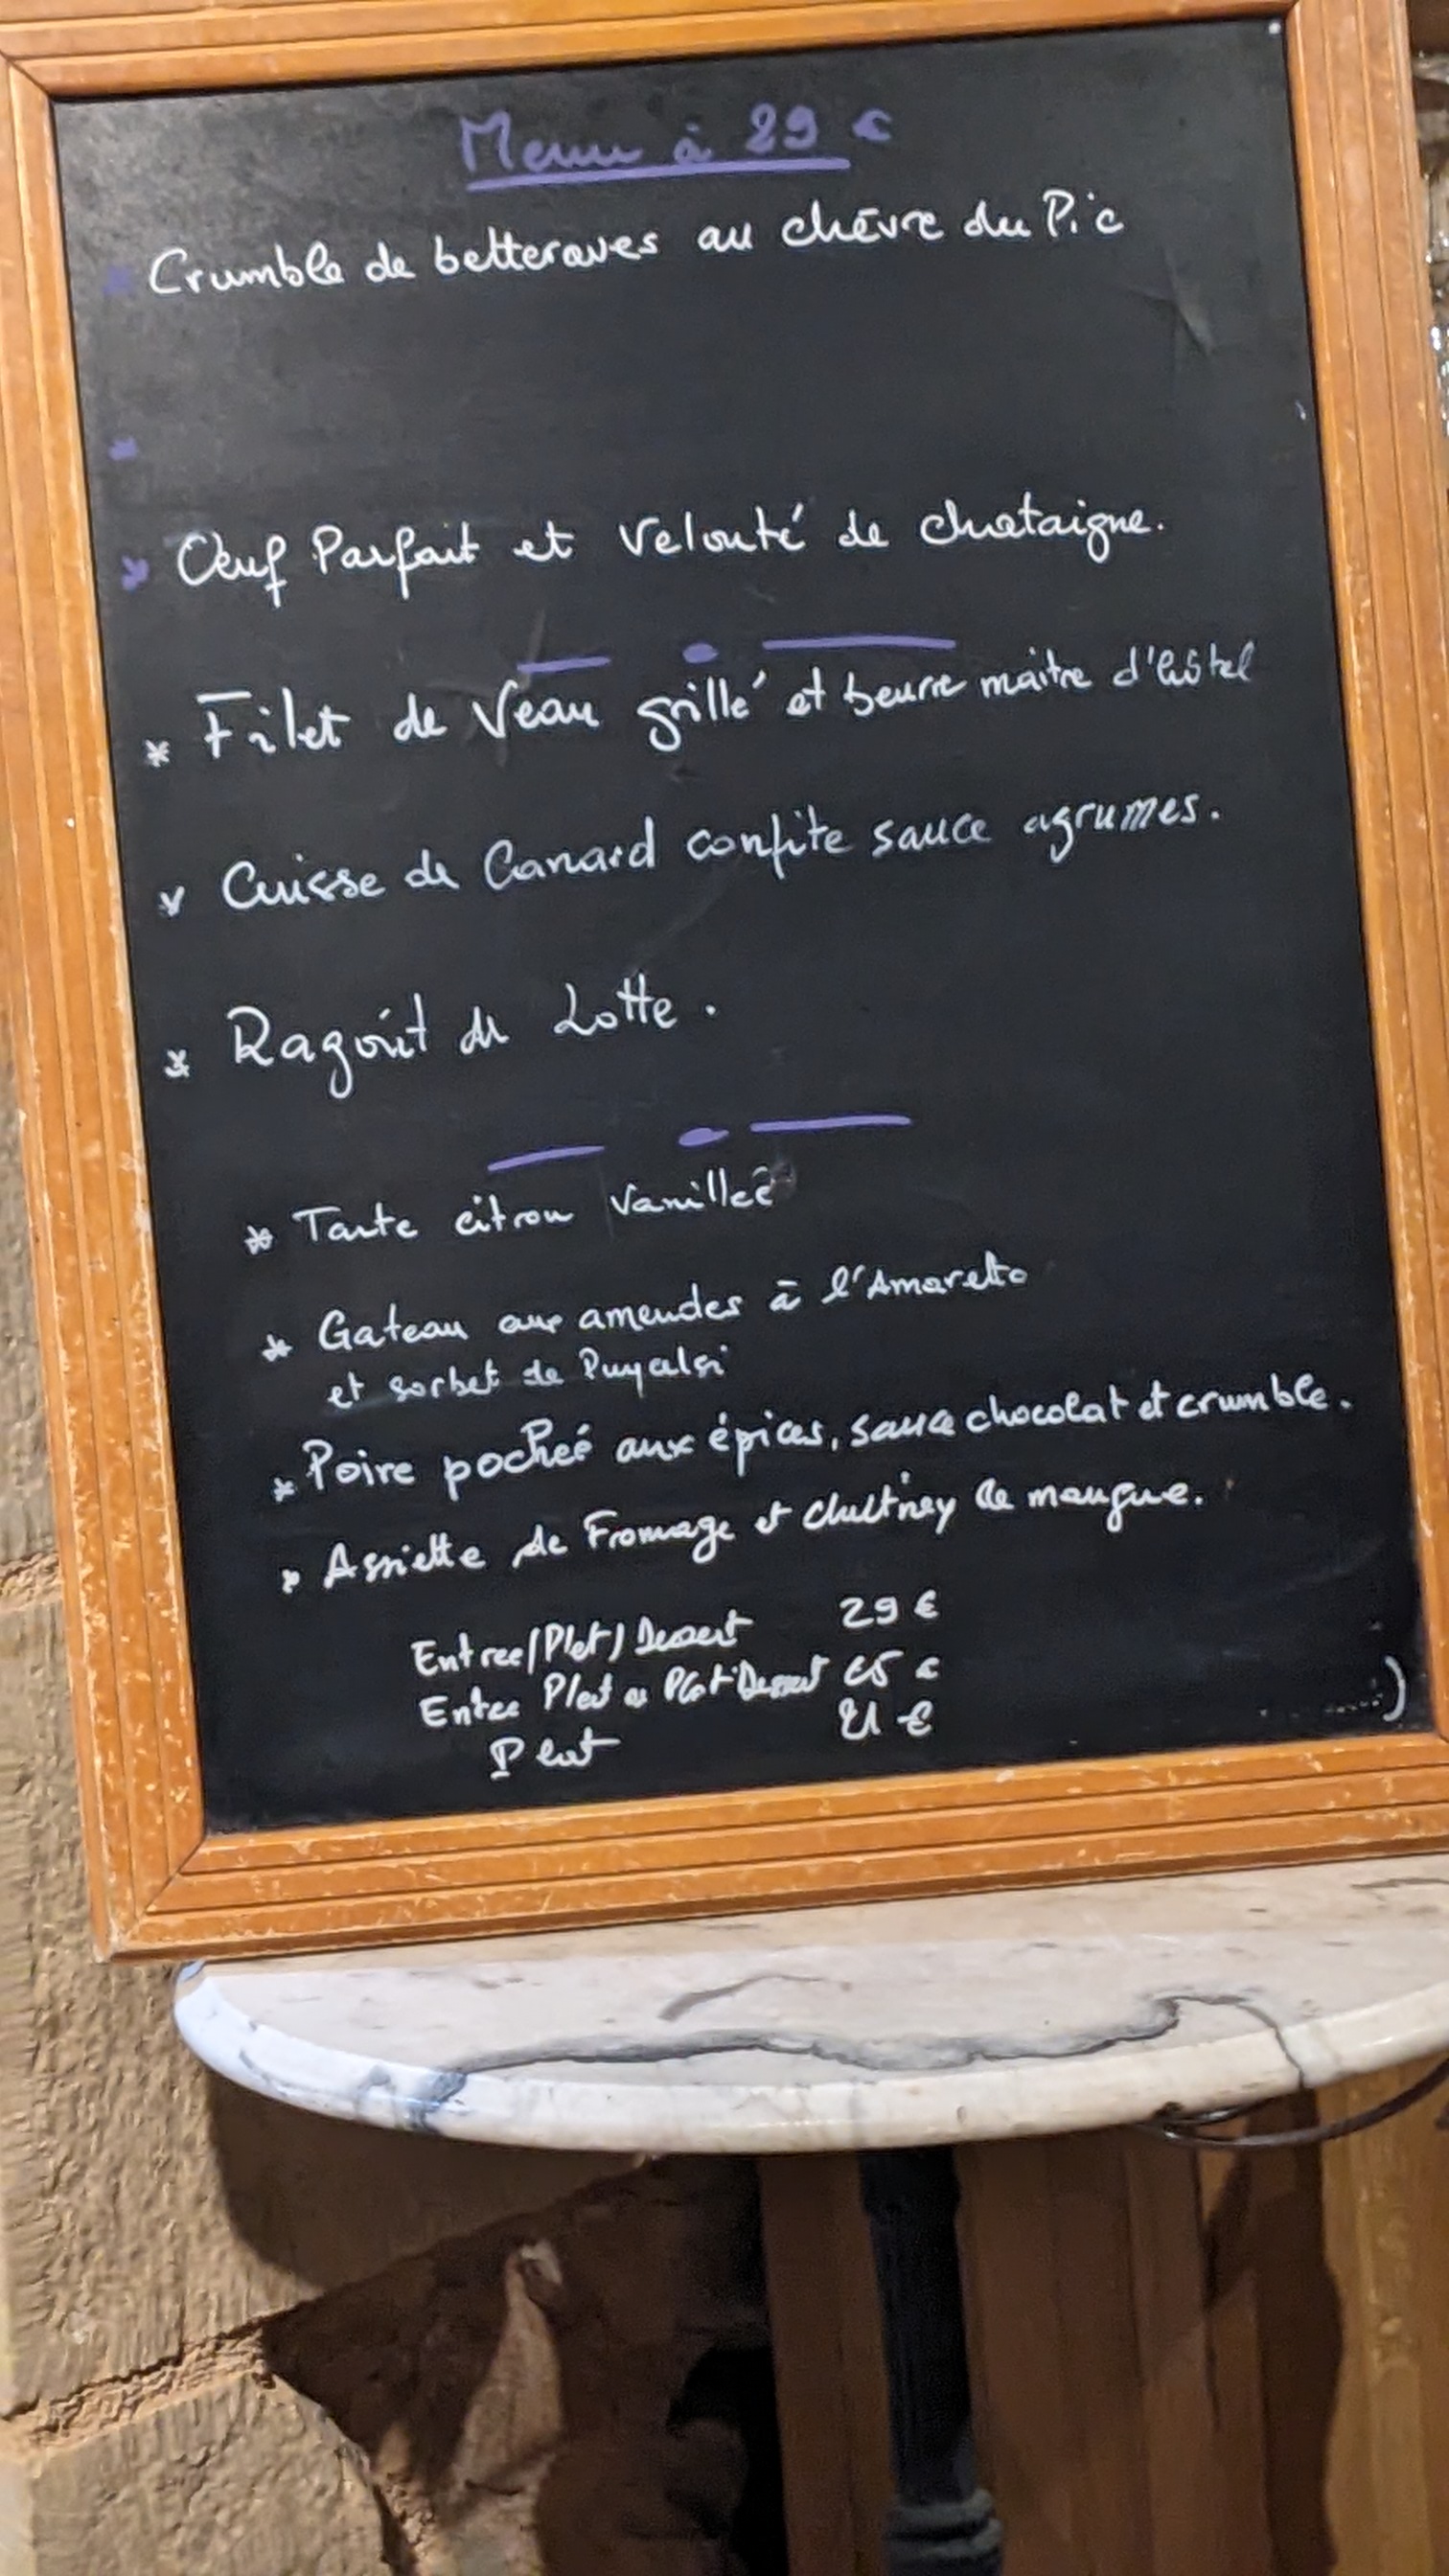 Menu à 29 €
Crumble de betteraves au chèvre du Pic
Œuf Parfait et Velouté de chataigne.
* Filet de Veau grillé et beurre maitre d'hôtel
* Cuisse de Canard confite sauce agrumes.
* Ragoût de Lotte.
* Tarte citron Vanillée
* Gateau aux amendes à l'Amaretto
et sorbet de Puycelsi
* Poire pochée aux épices, sauce chocolat et crumble.
* Assiette de Fromage et chultney de mangue.
Entree/Plat/Dessert 29 €
Entree Plat ou Plat-Dessert 25 €
Plat 21 €